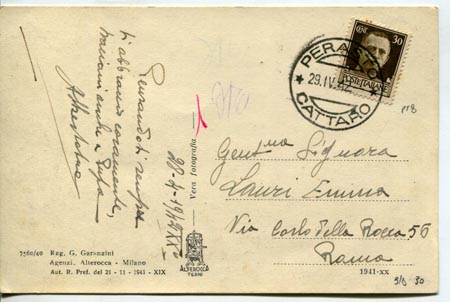 Pensandoti sempre
ti abbraccio caramente,
baciami anche
20-4-1942 XX°
Vera fotografia
7560/40 Rag. G. Garanzini
Agenzi. Alterocca - Milano
Aut. R. Pref. del 21 - 11 - 1941 - XIX
ALTEROCCA
TERNI
CENT. 30
POSTE ITALIANE
PERASTO
29.IV.42
CATTARO
Gent.ma Signora
Lauri Emma
Via Carlo della Rocca 56
Roma
1941-XX